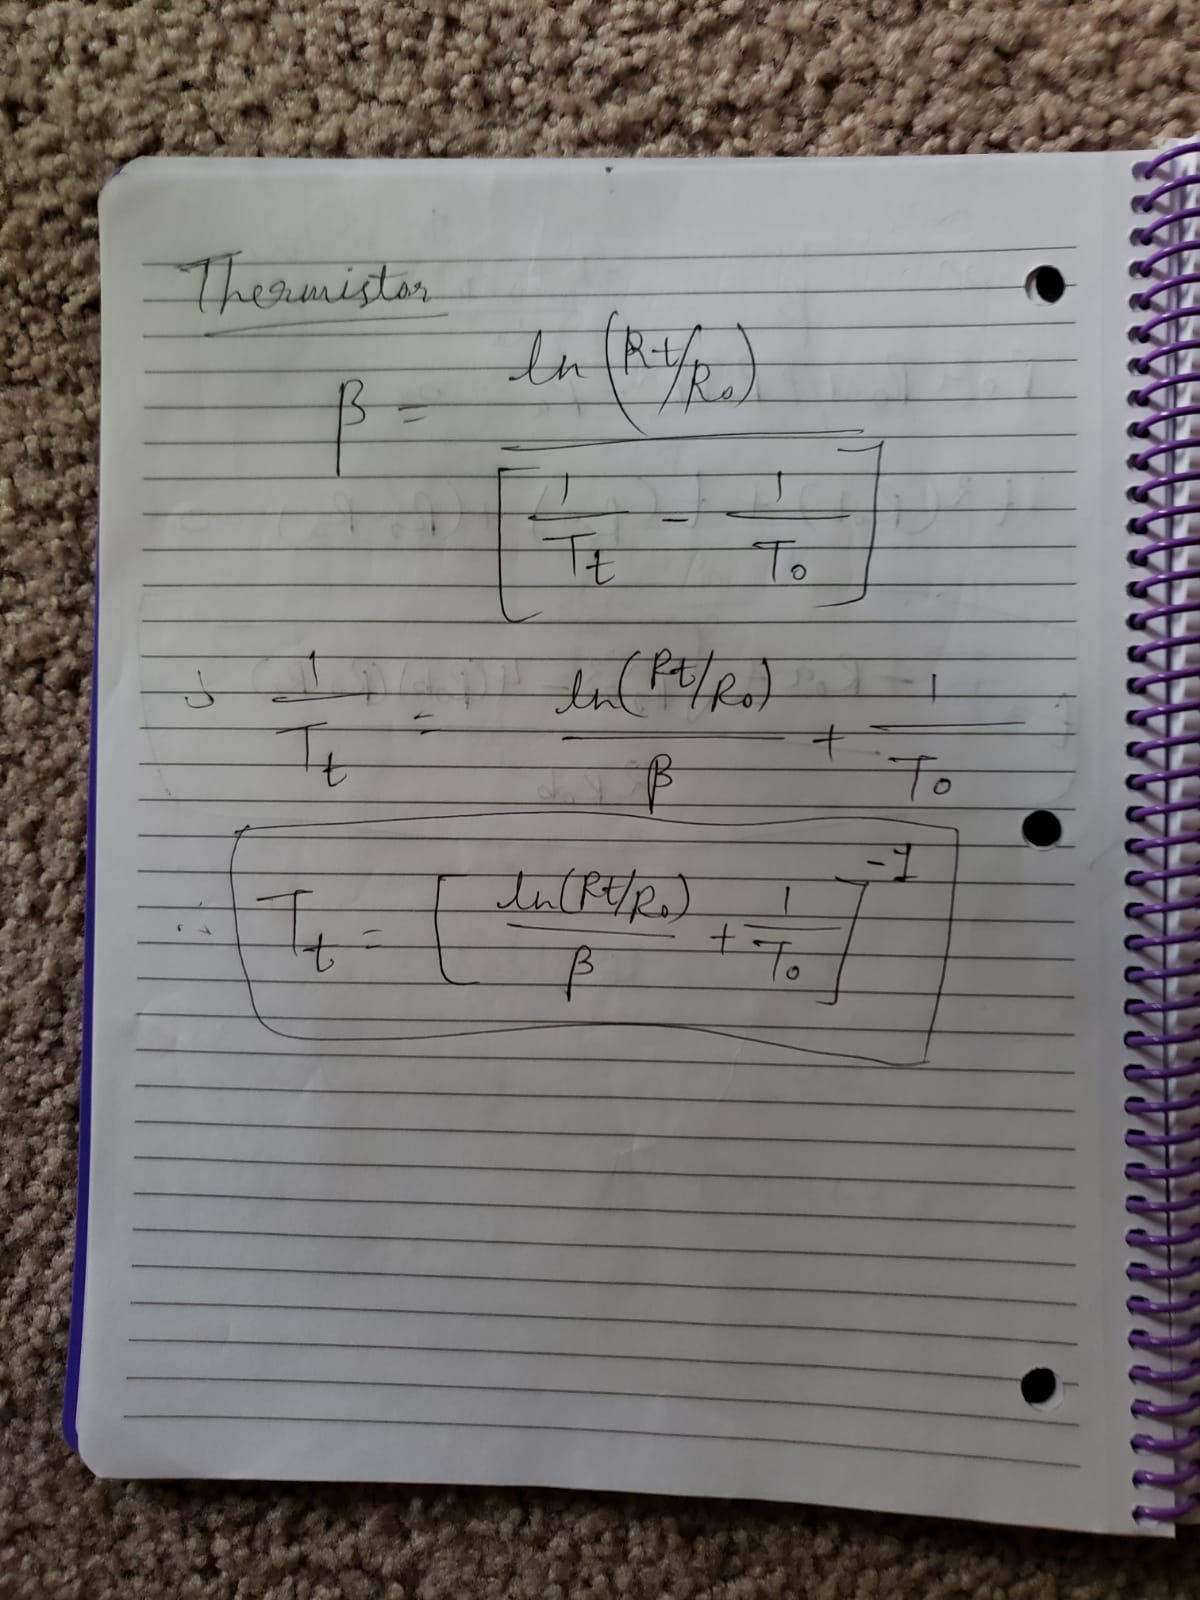 Thermistor
β = ln(Rt/R₀) / [1/T_t - 1/T₀]
1/T_t = ln(Rt/R₀)/β + 1/T₀
∴ T_t = [ln(Rt/R₀)/β + 1/T₀]⁻¹